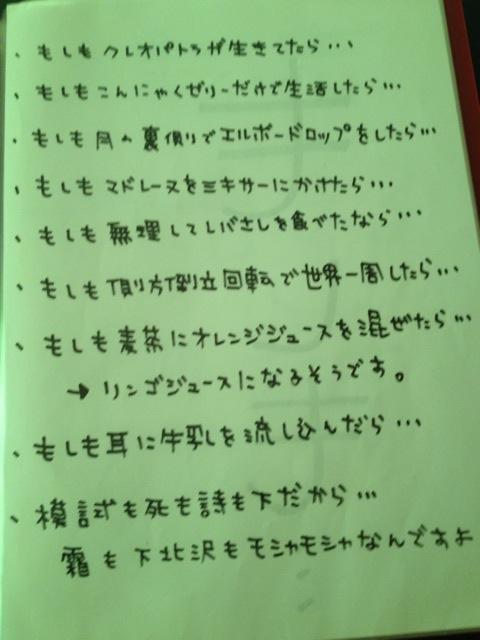 、もしもクレオパトラが生きてたら…
、もしもこんにゃくゼリーだけで生活したら…
、もしも月の裏側でエルボードロップをしたら…
、もしもマドレーヌをミキサーにかけたら…
、もしも無理してレバさしを食べたなら…
、もしも側方倒立回転で世界一周したら…
、もしも麦茶にオレンジジュースを混ぜたら…
→リンゴジュースになるそうです。
、もしも耳に牛乳を流し込んだら…
、模試も死も詩も下だから…
霜も下北沢もモシャモシャなんですよ